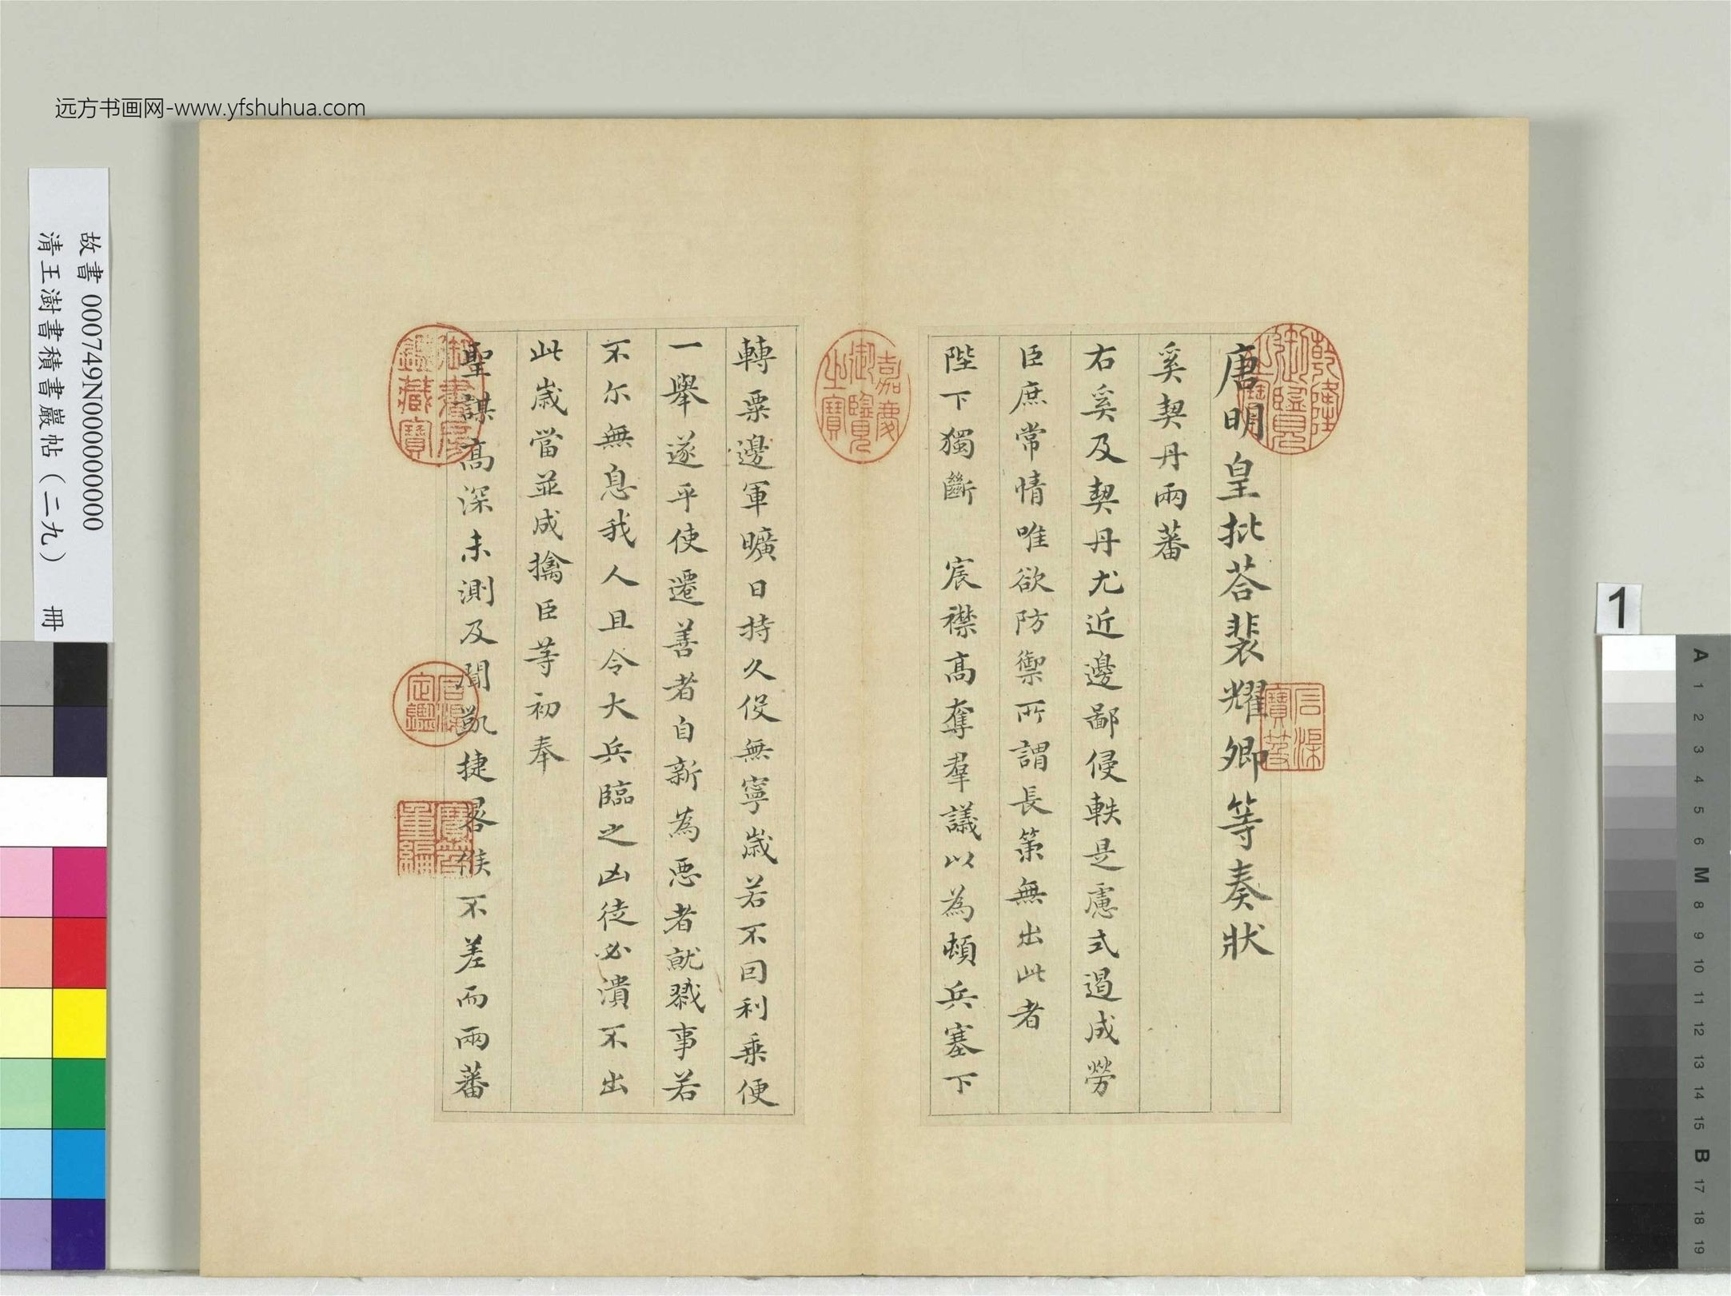 远方书画网-www.yfshuhua.com
故書 000749N000000000
清王澍書積書巖帖（二九） 冊
唐明皇批荅裴耀卿等奏狀
奚契丹兩蕃
右奚及契丹尤近邊鄙侵軼是慮式遏成勞
臣庶常情唯欲防禦所謂長策無出此者
陛下獨斷 宸襟高奪羣議以為頓兵塞下
轉粟邊軍曠日持久役無寧歲若不因利乘便
一舉遂平使遷善者自新為惡者就戮事若
不尓無息我人且令大兵臨之凶徒必潰不出
此歲當並成擒臣等初奉
聖謀高深未測及聞凱捷晷候不差而兩蕃
乾隆御覽之寶
石渠寶笈
嘉慶御覽之寶
御書房鑑藏寶
石渠定鑑
寶笈重編
1
A 1 2 3 4 5 6 M 8 9 10 11 12 13 14 15 B 17 18 19